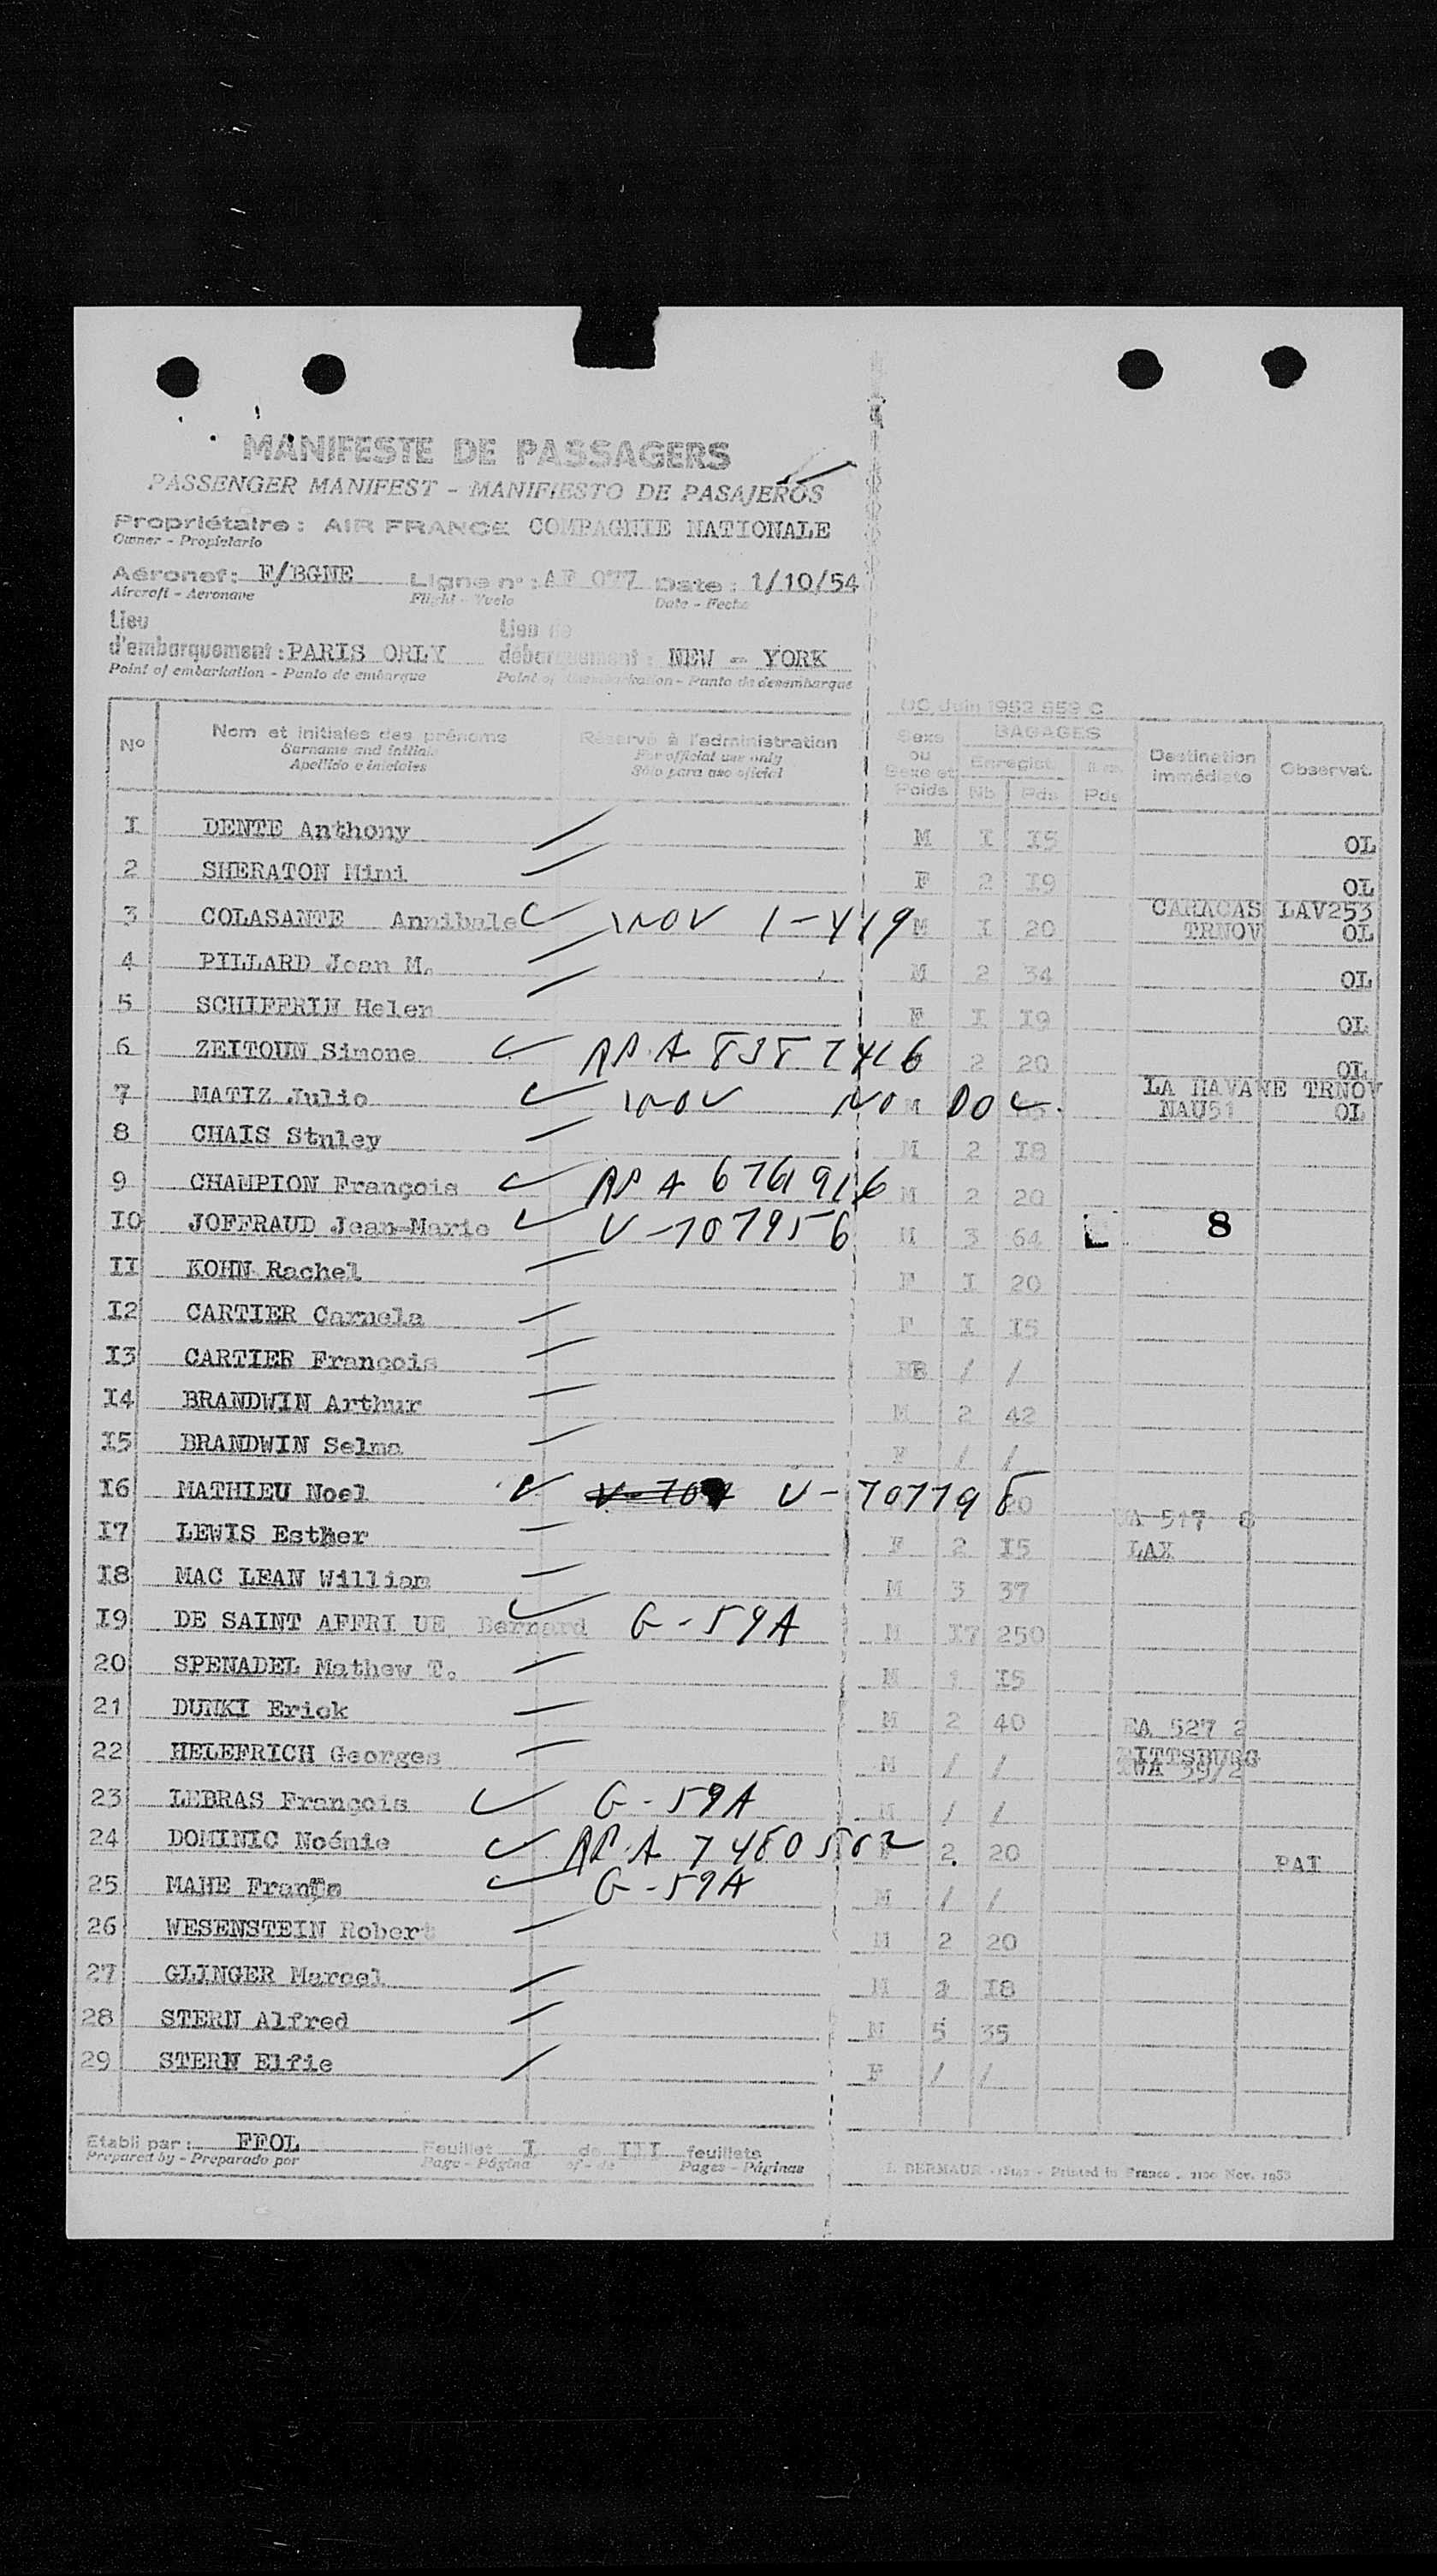 MANIFESTE DE PASSAGERS
PASSENGER MANIFEST - MANIFIESTO DE PASAJEROS
Propriétaire : AIR FRANCE COMPAGNIE NATIONALE
Owner - Propietario
Aéronef : F/BGNE Ligne n° : AF 077 Date : 1/10/54
Aircraft - Aeronave Flight - Vuelo Date - Fecha
Lieu Lieu de
d'embarquement : PARIS ORLY débarquement : NEW - YORK
Point of embarkation - Punto de embarque Point of disembarkation - Punto de desembarque
OC Juin 1952 559 C
N° Nom et initiales des prénoms Réservé à l'administration Sexe BAGAGES Destination Observat.
Surname and initials For official use only ou Enregist. immédiate
Apellido e iniciales Sólo para uso oficial Sexe et Poids Nb Pds Pds
I DENTE Anthony M I I5 OL
2 SHERATON Mimi F 2 I9 OL
CARACAS LAV253
3 COLASANTE Annibale INOV 1-449 M I 20 TRNOV OL
4 PILLARD Jean M. M 2 34 OL
5 SCHIFFRIN Helen F I I9 OL
6 ZEITOUN Simone 2 20 OL
LA HAVANE TRNOV
7 MATIZ Julio INOV NO DOC. M NAU51 OL
8 CHAIS Stnley M 2 I8
9 CHAMPION François M 2 20
I0 JOFFRAUD Jean-Marie V-707956 M 3 64 8
II KOHN Rachel F I 20
I2 CARTIER Carmela F I I5
I3 CARTIER François BB / /
I4 BRANDWIN Arthur M 2 42
I5 BRANDWIN Selma F / /
I6 MATHIEU Noel V-707798 20
517 8
I7 LEWIS Esther F 2 I5 LAX
I8 MAC LEAN William M 3 37
I9 DE SAINT AFFRI UE Bernard G-59A M I7 250
20 SPENADEL Mathew T. M 1 I5
21 DUNKI Erick M 2 40 527 2
PITTSBURG
22 HELEFRICH Georges M / / TWA 39/2
23 LEBRAS François G-59A M / /
24 DOMINIC Noémie 2 20 PAI
25 MAHE G-59A M / /
26 WESENSTEIN Robert M 2 20
27 GLINGER Marcel M I8
28 STERN Alfred M 5 35
29 STERN Elfie F / /
Etabli par : FFOL Feuillet I de III feuillets
Prepared by - Preparado por Page - Página of - de Pages - Páginas
DERMAUR - Printed in France. Nov. 1953